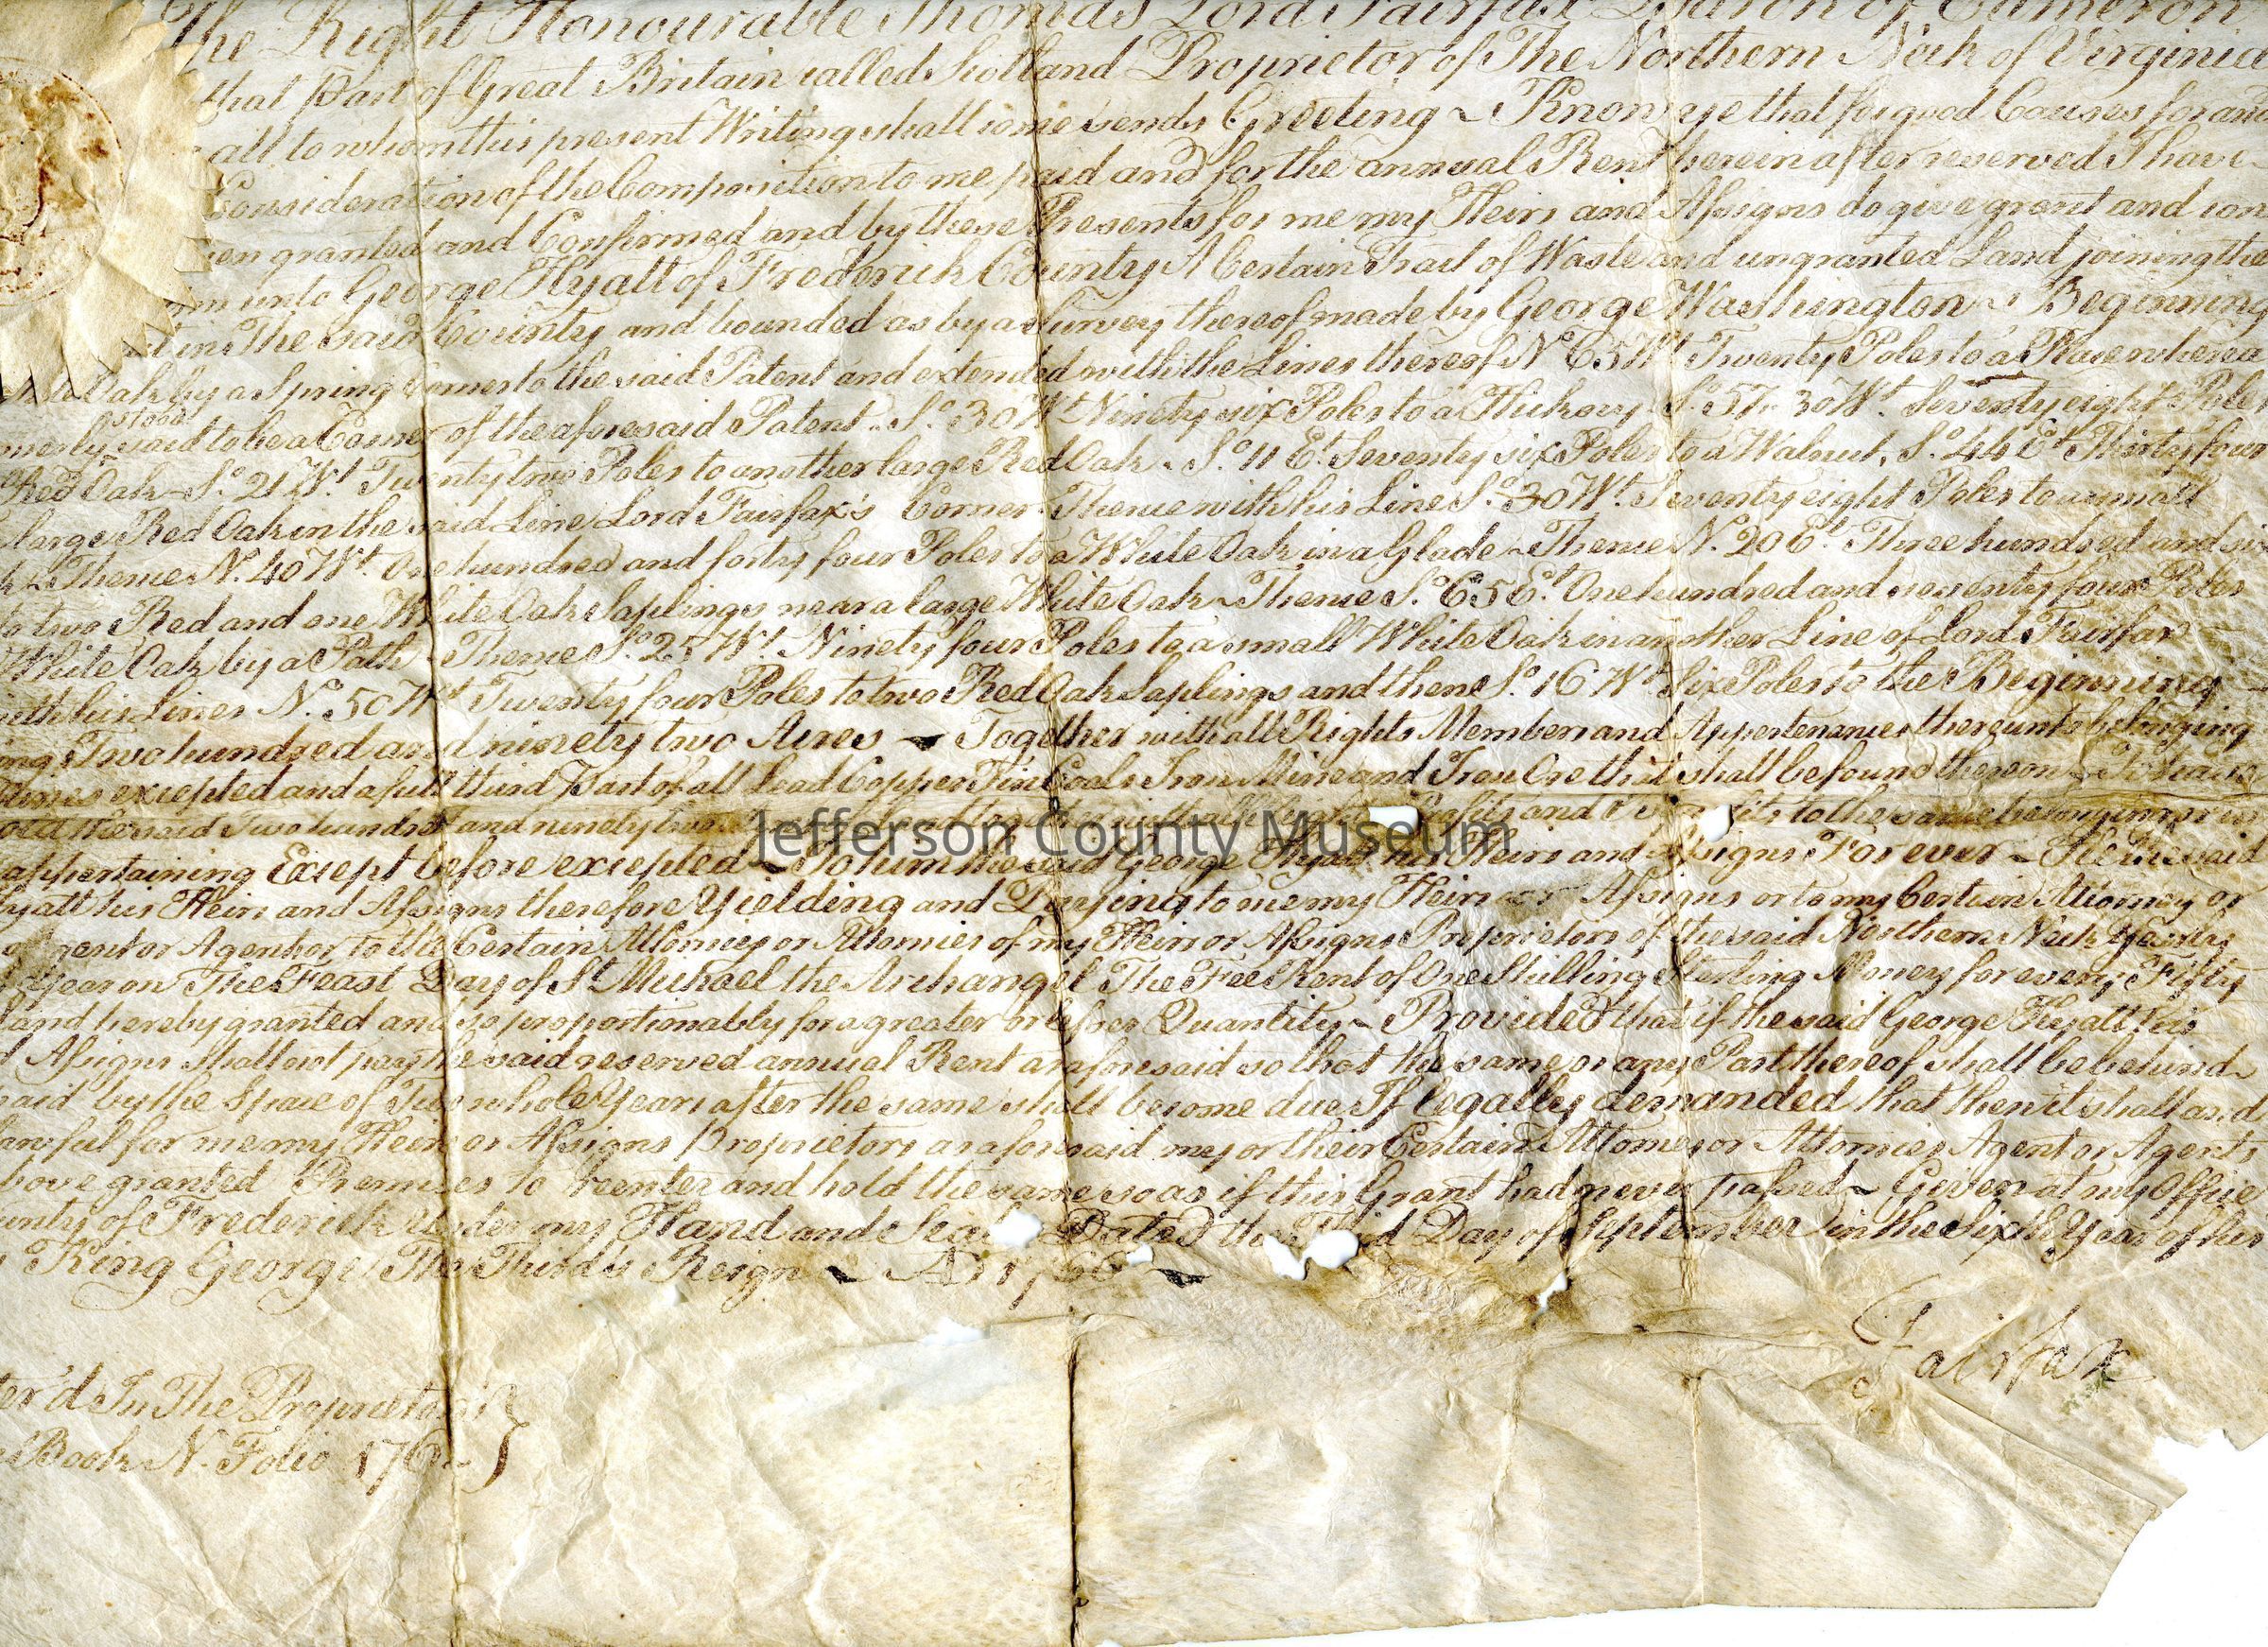 The Right Honourable Thomas Lord Fairfax Baron of Cameron
that Part of Great Britain called Scotland Proprietor of The Northern Neck of Virginia
all to whom this present Writing shall come sends Greeting ~ Know ye that for good Causes for and
Consideration of the Composition to me paid and for the annual Rent herein after reserved I have
ven granted and Confirmed and by these Presents for me my Heirs and Assigns do give grant and con
rm unto George Hyatt of Frederick County A Certain Tract of Waste and ungranted Land joining the
in The said County and bounded as by a Survey thereof made by George Washington ~ Beginning
Oak by a Spring Corner to the said Patent and extended with the Lines thereof No. 65 Wt. Twenty Poles to a Place where a
merly stood said to be a Corner of the aforesaid Patent So. 30 Wt Ninety six Poles to a Hickory So. 57.. 30 Wt. Seventy eight Poles
Red Oak So. 21 Wt. Twenty two Poles to another large Red Oak So. 11 Et. Seventy six Poles to a Walnut, So. 44 Et Thirty four
large Red Oak in the said Line Lord Fairfax's Corner Thence with his Line So. 30 Wt. Seventy eight Poles to a small
k ~ Thence N. 40 Wt. One hundred and forty four Poles to a White Oak in a Glade ~ Thence N. 20 Et. Three hundred and six
to two Red and one White Oak Saplings near a large White Oak ~ Thence So. 65 Et. One hundred and seventy four Poles
White Oak by a Path ~ Thence So. 25 Wt. Ninety four Poles to a small White Oak in another Line of Lord Fairfax
with his Lines No. 50 Wt Twenty four Poles to two Red Oak Saplings and thence So. 16 Wt. Six Poles to the Beginning
ing Two hundred and ninety two Acres ~ Together with all Rights Members and Appertenances thereunto belonging
Mines excepted and a full third Part of all Lead Copper Tin Coals Iron Mine and Iron Ore that shall be found thereon ~ To have
the said Two hundred and ninety two Profits and to the same belonging or in
appertaining Except before excepted ~ To him the said George Hyatt his Heirs and Assigns Forever ~ He the said
Hyatt his Heirs and Assigns therefore Yielding and Paying to me my Heirs or Assigns or to my Certain Attorney or
Agent or Agents or to the Certain Attorney or Attornies of my Heirs or Assigns Proprietors of the said Northern Neck Yearly
Year on The Feast Day of St. Michael the Archangel The Fee Rent of One Shilling Sterling Money for every Fifty
Land hereby granted and so proportionably for a greater or lesser Quantity ~ Provided that if the said George Hyatt his
Assigns shall not pay the said reserved annual Rent as aforesaid so that the same or any Part thereof shall be behind ~
paid by the Space of Two whole Years after the same shall become due If legally demanded that then it shall and
lawful for me my Heirs or Assigns Proprietors as aforesaid my or their Certain Attorney or Attornies Agent or Agents
bove granted Premises to reenter and hold the same so as if this Grant had never passed ~ Given at my Office
unty of Frederick Under my Hand and Seal Dated the Third Day of September in the Sixth Year of his
King George The Third's Reign ~ AD 1766 ~
Fairfax
ter'd In The Proprietors
Book N. Folio 176
Jefferson County Museum